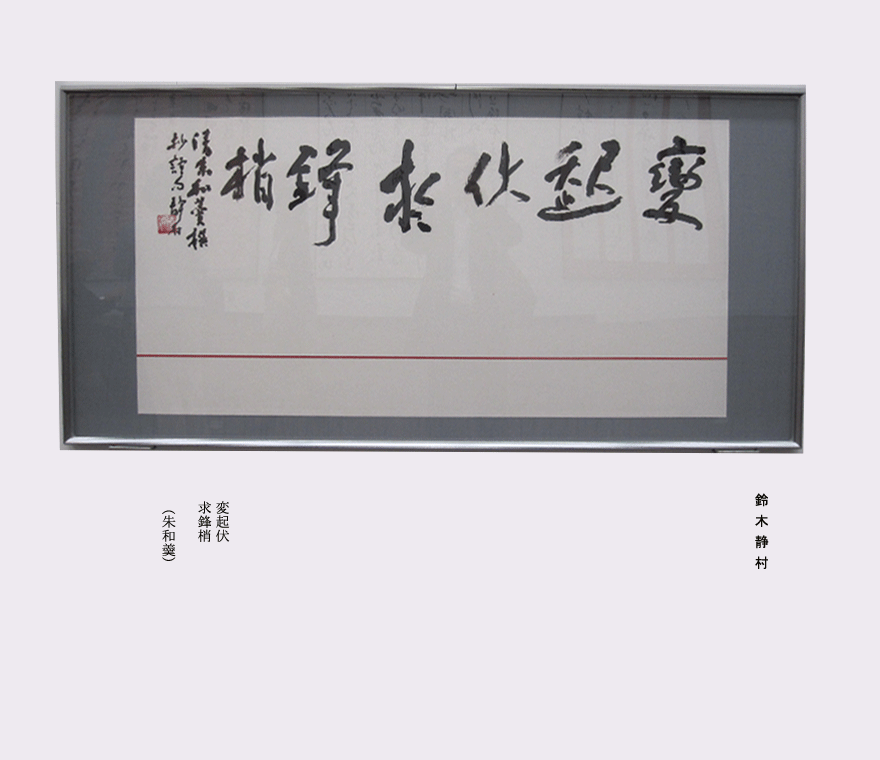 變起伏求鋒梢
清朱和羹撰
抄録 静村
鈴木静村
変起伏
求鋒梢
（朱和羹）